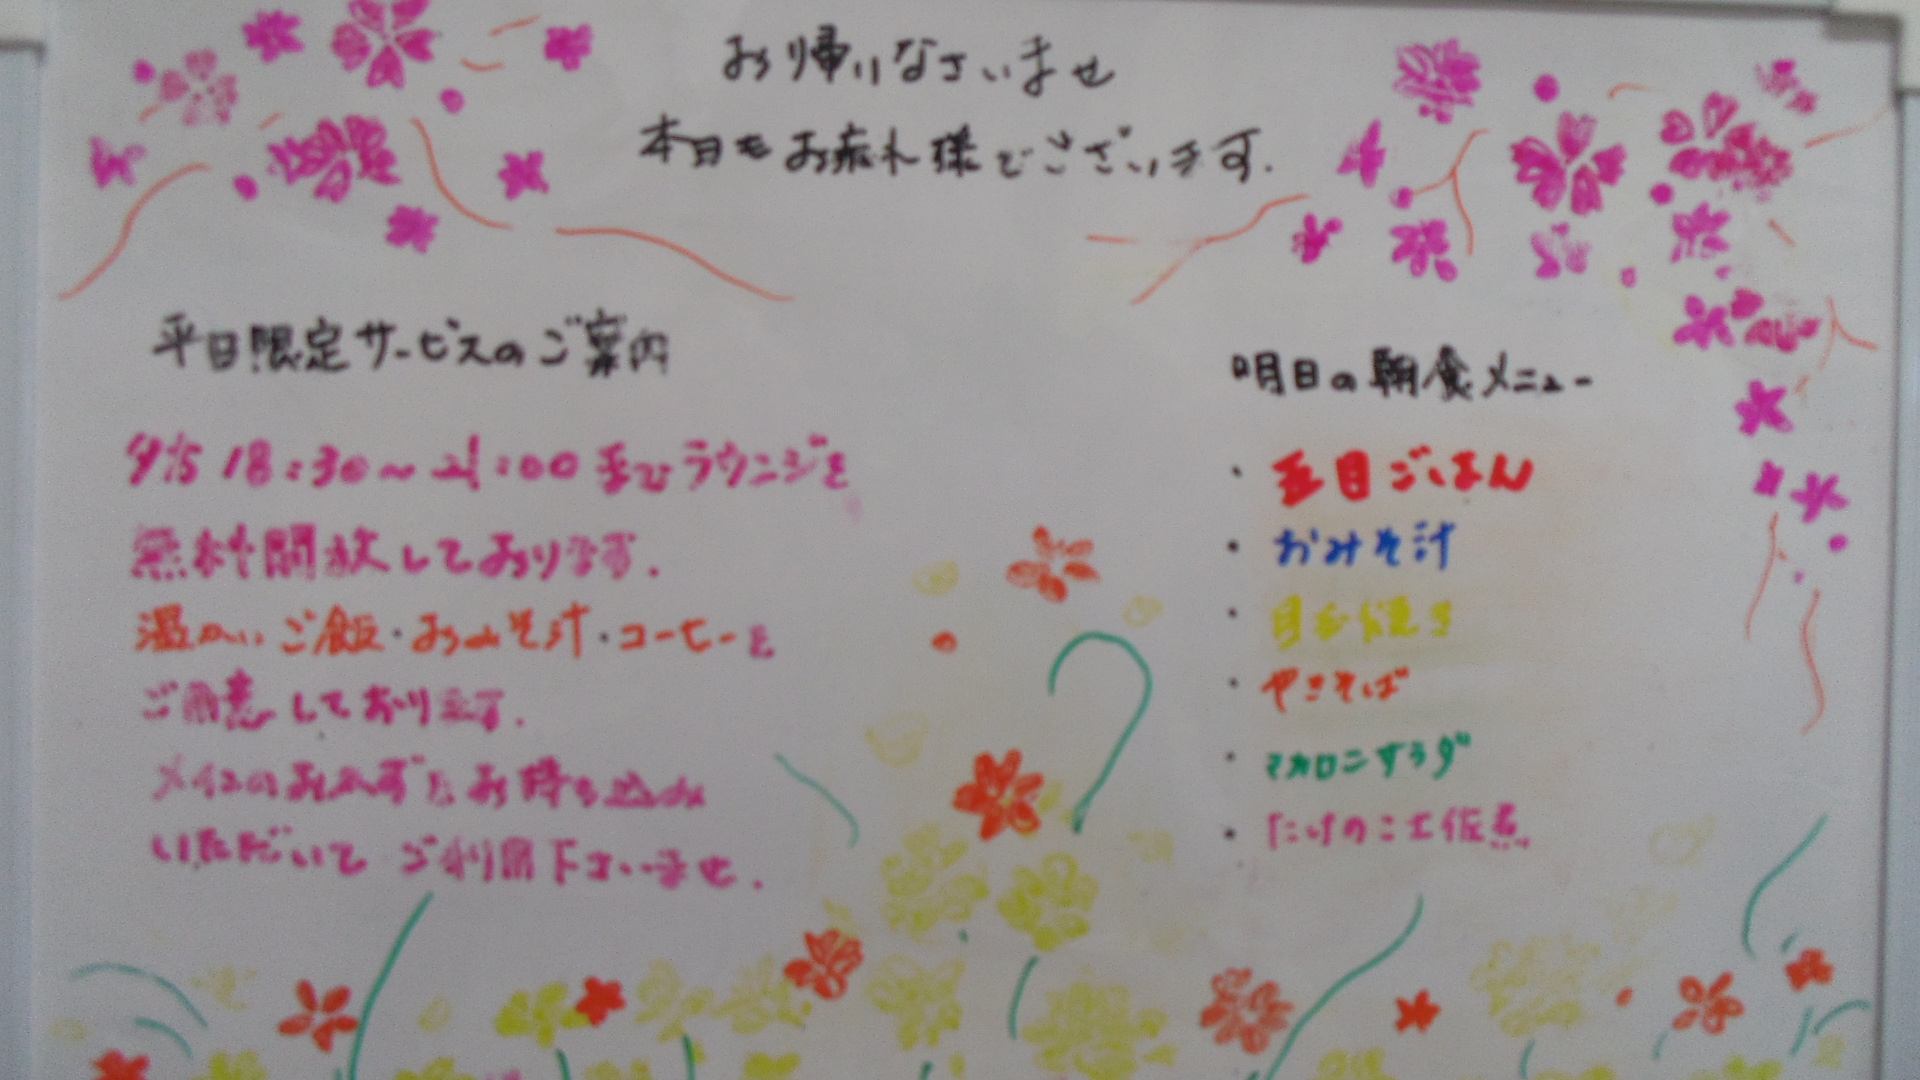 お帰りなさいませ
本日もお疲れ様でございます.
平日限定サービスのご案内
夕方 18:30~21:00までラウンジを
無料開放しております.
温かいご飯・おみそ汁・コーヒーを
ご用意しております.
メインのおかずをお持ち込み
いただいて ご利用下さいませ.
明日の朝食メニュー
・五目ごはん
・おみそ汁
・月玉焼き
・やきそば
・マカロニサラダ
・たけのこ土佐煮